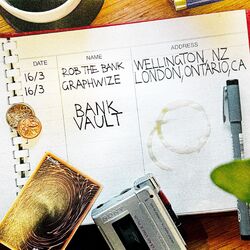 DATE NAME ADDRESS
16/3 ROB THE BANK WELLINGTON, NZ
16/3 GRAPHWIZE LONDON, ONTARIO, CA
BANK
VAULT
SONY